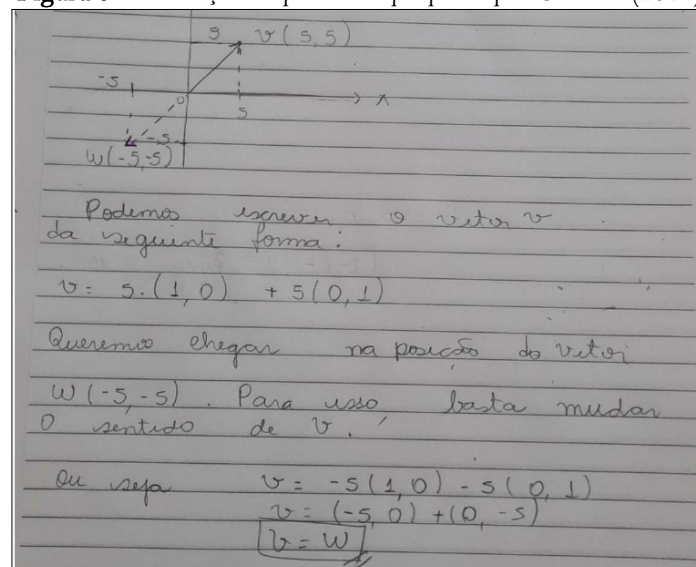 5 v (5,5)
-5
0
5
x
-5
W(-5,-5)
Podemos escrever o vetor v
da seguinte forma:
v = 5.(1,0) + 5(0,1)
Queremos chegar na posição do vetor
W(-5,-5). Para isso basta mudar
O sentido de v.
Ou seja v = -5(1,0) - 5(0,1)
v = (-5,0) + (0,-5)
v = W